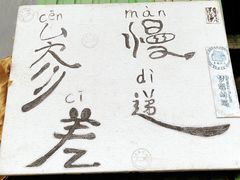 cēn
参
cī
差
màn
慢
dì
递